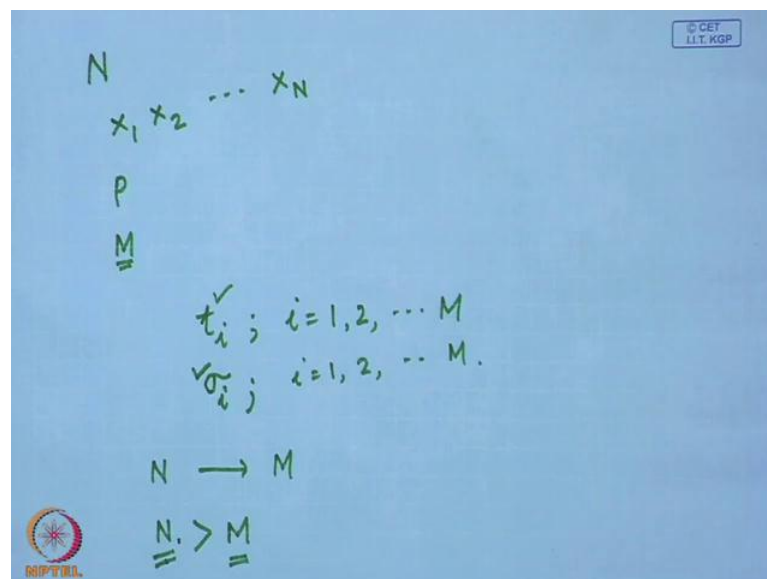 © CET
I.I.T. KGP
N
x₁ x₂ ... x_N
P
M
t_i ; i = 1, 2, ... M
σ_i ; i = 1, 2, .. M.
N → M
N. > M
NPTEL